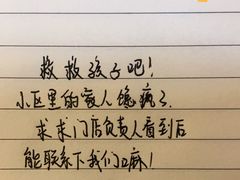 救救孩子吧！
小区里的家人馋疯了.
求求门店负责人看到后
能联系下我们嘛！